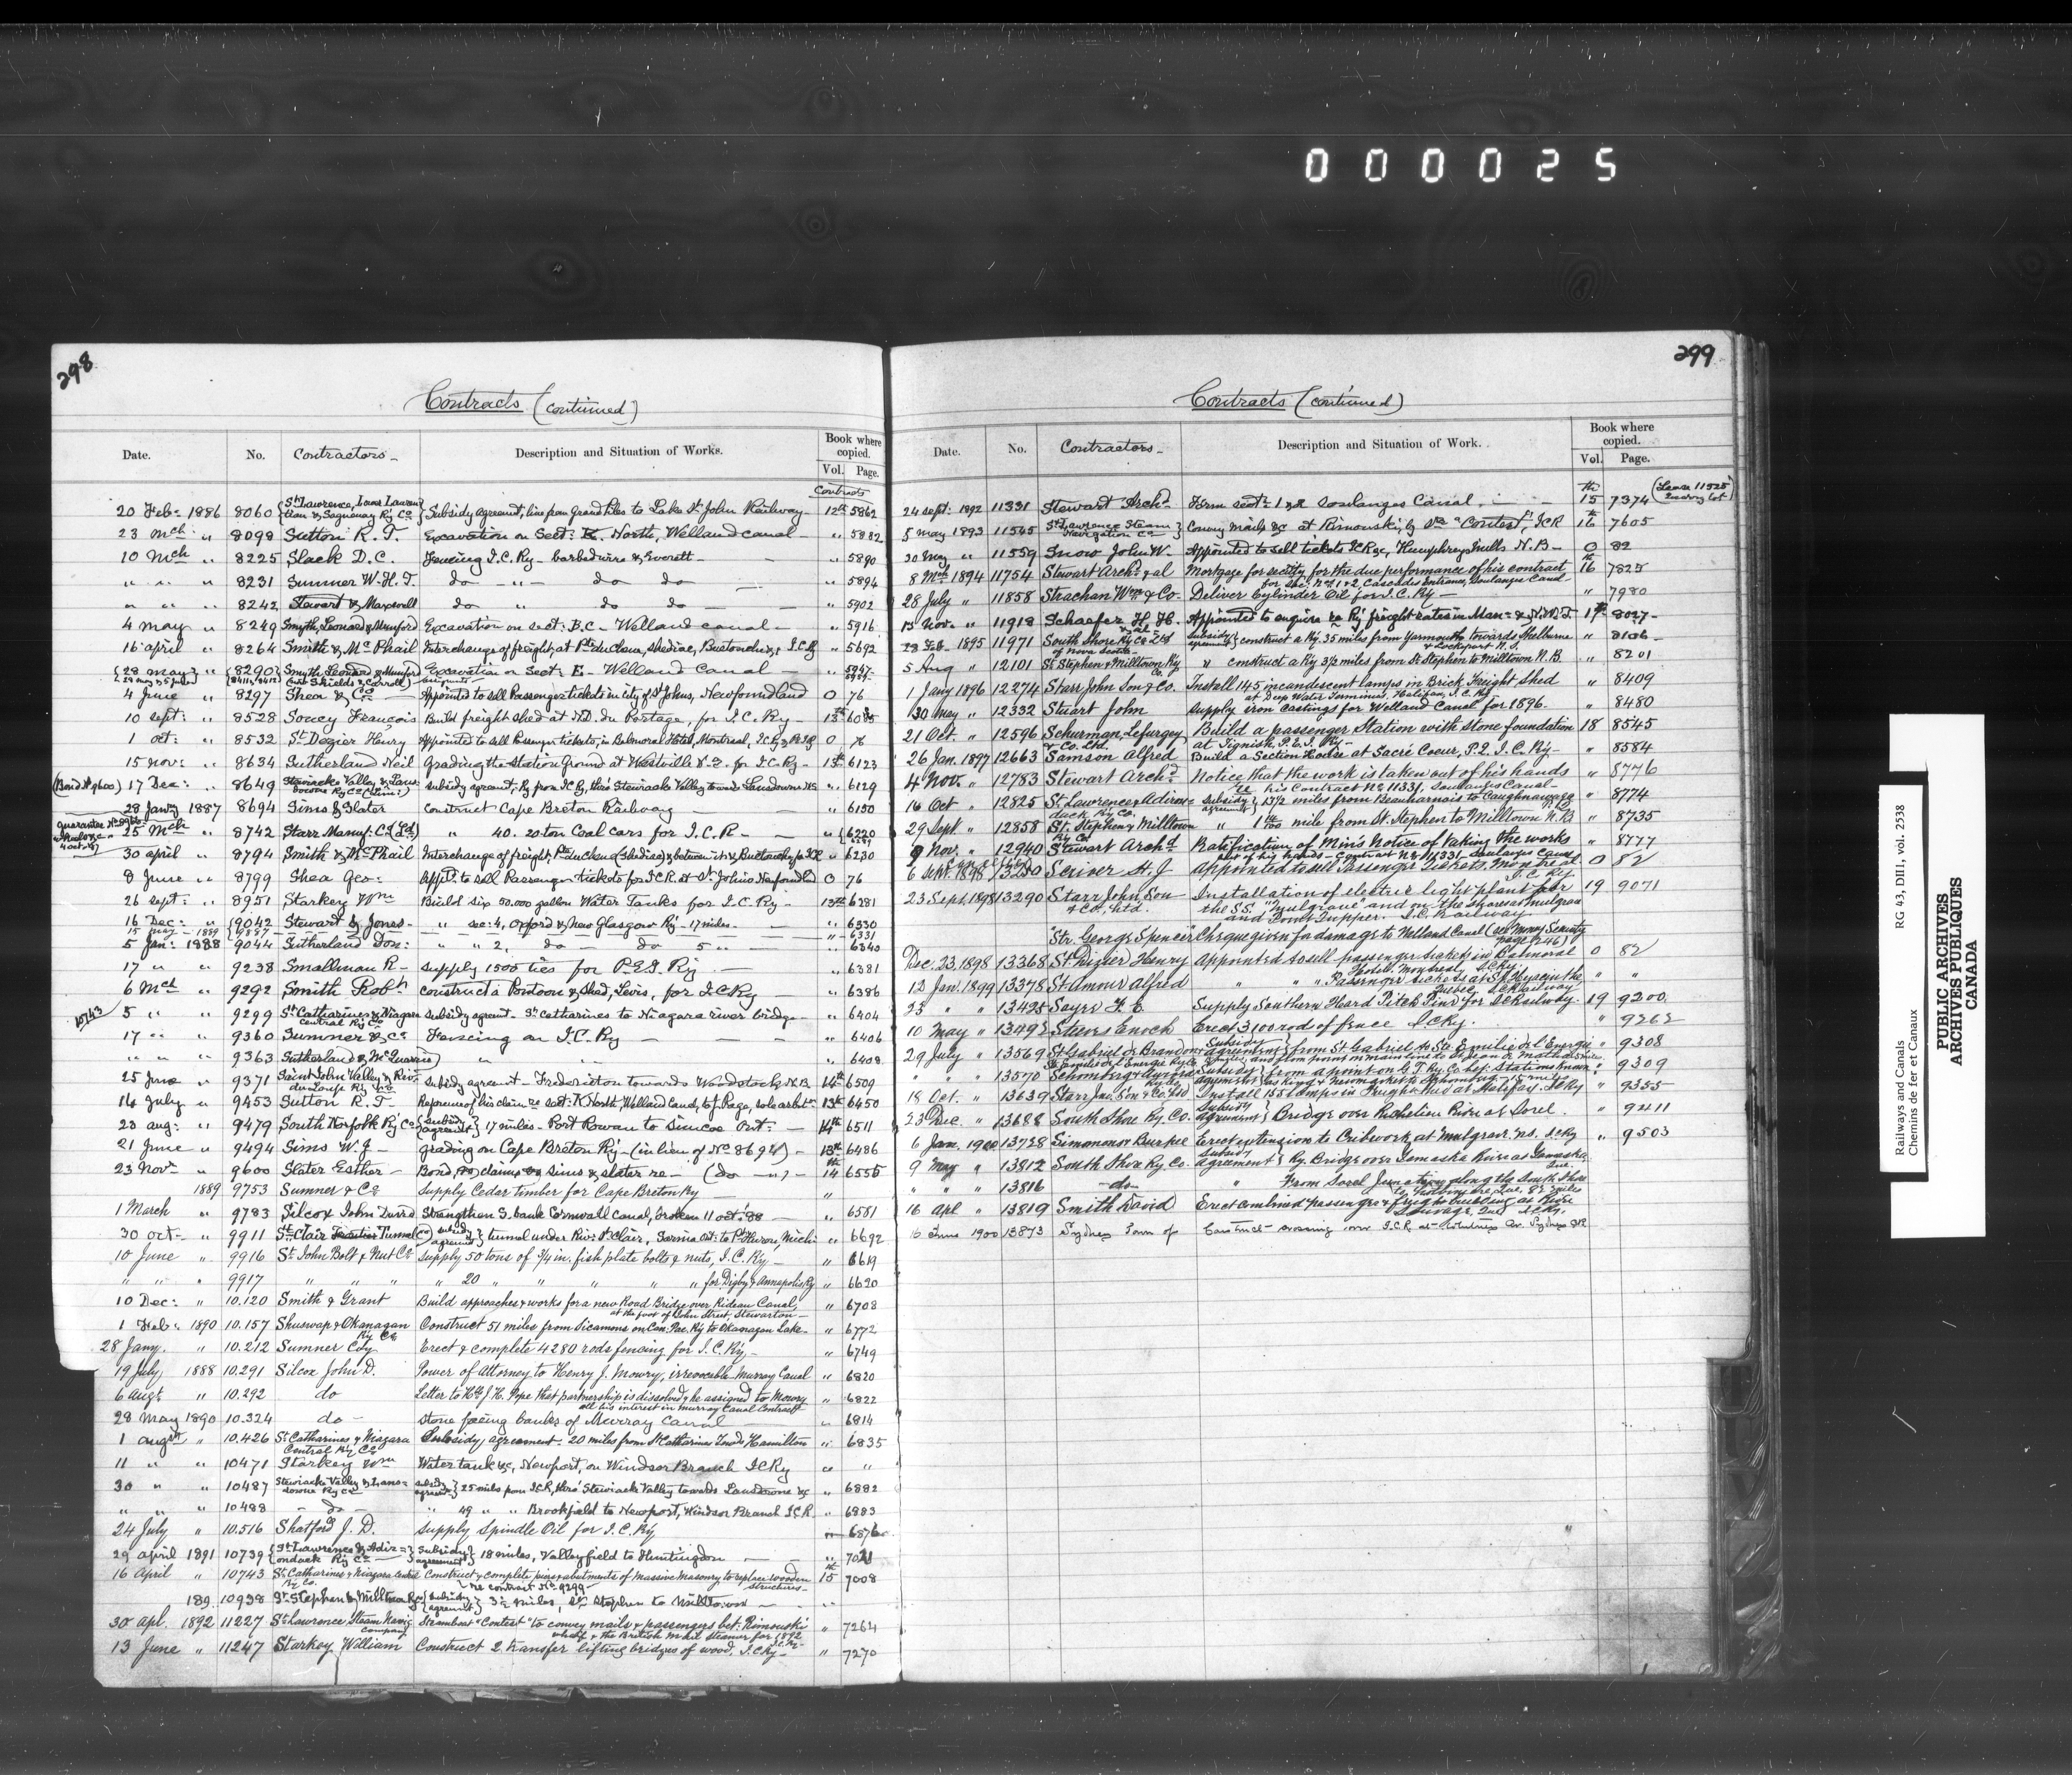 000025
298
Contracts (continued)
Date. No. Contractors Description and Situation of Works. Book where copied. Vol. Page.
Contracts
20 Feb: 1886 8060 St Lawrence, Lower Lauren- tian & Saguenay Ry Co Subsidy agreemt, line from Grand Piles to Lake St John Railway 12th 5862
23 Mch " 8098 Sutton R. T. Excavation on Sect: K North, Welland canal " 5882
10 Mch " 8225 Slack D. C. Fencing I.C. Ry - barbed wire & Everett " 5890
" " " 8231 Sumner W. H. T. do " do do " 5894
" " " 8242 Stewart & Maxwell do " do do " 5902
4 May " 8249 Smyth, Leonard & Mumford Excavation on sect: B.C - Welland canal " 5916
16 april " 8264 Smith & McPhail Interchange of freight, at Pte du Chene, Shediac, Buctouche & I.C.Ry " 5692
28 may " 8290 Smyth Leonard & Mumford Excavation on Sect: E - Welland Canal " 5947
4 June " 8297 Shea & Co Appointed to sell Passenger tickets in city of St Johns, Newfoundland 0 76
10 sept: " 8528 Soucy Francois Build freight shed at N.D. du Portage, for I.C. Ry 13th
1 oct: " 8532 St Dezier Henry Appointed to sell Passenger tickets, in Balmoral Hotel, Montreal, I.C.Ry & P.E.I.Ry 0 76
15 nov: " 8634 Sutherland Neil Grading the Station Ground at Westville N.S. for I.C. Ry 13th 6123
(Bond No 9600) 17 Dec: " 8649 Stewiacke Valley & Lans- downe Ry Co (Limd) subsidy agreemt, Ry from I.C.Ry, thro' Stewiacke Valley towards Lansdowne NS " 6129
28 Jany 1887 8694 Sims & Slater Construct Cape Breton Railway " 6150
25 Mch " 8742 Starr Manuf: Co Ltd " 40. 20 ton Coal cars for I.C.R " 6220
30 april " 8794 Smith & McPhail Interchange of freight, Pte du Chene (Shediac) & between it & Buctouche for ICR " 6230
8 June " 8799 Shea Geo: Apptd to sell Passenger tickets for I.C.R. at St John's Newfoundland 0 76
26 sept: " 8951 Starkey Wm Build six 50.000 gallon Water Tanks for I.C. Ry 13th 6281
16 Dec: " 9042 Stewart & Jones " sec: 4, Oxford & New Glasgow Ry - 17 miles " 6330
15 may 1889 9837 " 6331
5 Jan: 1888 9044 Sutherland Don: " " 2, do do 5 " 6340
17 " " 9238 Smallman R supply 1500 ties for P.E.I. Ry " 6381
6 Mch " 9292 Smith Robt construct a Pontoon & Shed, Levis, for I.C.Ry " 6386
10743 5 " " 9299 St Catharines & Niagara Central Ry Co subsidy agreemt - St Catharines to Niagara river bridge " 6404
17 " " 9360 Sumner & Co Fencing on I.C. Ry " 6406
" " " 9363 Sutherland & McQuarrie " " " 6408
25 June " 9371 Saint John Valley & Riv: du Loup Ry Co subsidy agreemt - Fredericton towards Woodstock N.B. 14th 6509
14 July " 9453 Sutton R. T Reference of his claim re sect: K North, Welland Canal, to J. Page, sole arbitr 13th 6450
23 aug: " 9479 South Norfolk Ry Co subsidy agreemt 17 miles - Port Rowan to Simcoe Ont: 14th 6511
21 June " 9494 Sims W. J grading on Cape Breton Ry - (in lieu of No 8694) 13th 6486
23 Novr " 9600 Slater Esther Bond, claims Sims & Slater re (do) 14th 6555
1889 9753 Sumner & Co Supply Cedar timber for Cape Breton Ry "
1 March 9783 Silcox John David Strengthen S. bank Cornwall Canal, broken 11 oct: '88 " 6551
30 oct " 9911 St Clair Tunnel Co subsidy agreemt tunnel under Riv: St Clair, Sarnia Ont: to Pt Huron, Mich: " 6692
10 June " 9916 St John Bolt & Nut Co Supply 50 tons of 3/4 in. fish plate bolts & nuts, I.C. Ry " 6619
" " " 9917 " " " " 20 " " " " for Digby & Annapolis Ry " 6620
10 Dec: " 10.120 Smith & Grant Build approaches & works for a new Road Bridge over Rideau Canal, at the foot of John Street, Stewarton " 6708
1 Feb: 1890 10.157 Shuswap & Okanagan Ry Co Construct 51 miles from Sicamous on Can: Pac. Ry to Okanagan Lake " 6772
28 Jany. " 10.212 Sumner Coy Erect & complete 4280 rods fencing for I.C. Ry " 6749
19 July 1888 10.291 Silcox John D. Power of Attorney to Henry J. Mowry, irrevocable Murray Canal " 6820
6 Augt " 10.292 do Letter to Hble J. H. Pope that partnership is dissolved & he assigned to Mowry all his interest in Murray Canal Contract " 6822
28 May 1890 10.324 do stone facing banks of Murray Canal " 6814
1 augst " 10.426 St Catharines & Niagara Central Ry Co Subsidy agreement - 20 miles from St Catharines Towds Hamilton " 6835
11 " " 10471 Starkey Wm Water tank &c, Newport, on Windsor Branch ICRy " "
30 " " 10487 Stewiacke Valley & Lans- downe Ry Co subsidy agreemt 25 miles from I.C.R, thro' Stewiacke Valley towards Lansdowne &c " 6882
" " " 10488 do " 49 " " Brookfield to Newport, Windsor Branch I.C.R " 6883
24 July " 10.516 Shatford J. D. Supply Spindle Oil for I.C. Ry " 6876
29 april 1891 10739 St Lawrence & Adir- ondack Ry Co subsidy agreement 18 miles, Valleyfield to Huntingdon "
16 April " 10743 St Catharines & Niagara Central Ry Co. Construct & complete piers & abutments of Massive Masonry, to replace wooden structures re contract No 9299 15th 7008
189 10938 St Stephen & Milltown Ry subsidy agreemt 3½ miles, St Stephen to Milltown "
30 apl. 1892 11227 St Lawrence Steam Navig Company Steamboat "Contest" to convey mails & passengers bet: Rimouski wharf & the British mail steamer for 1892 " 7264
13 June " 11247 Starkey William Construct 2 transfer lifting bridges of wood, I.C.Ry " 7270
299
Contracts (continued)
Date. No. Contractors Description and Situation of Work. Book where copied. Vol. Page.
24 sept: 1892 11331 Stewart Archd Form sect: 1 & 2 Soulanges Canal 15th 7374 (Lease 11525
5 may 1893 11545 St Lawrence Steam Navigation Co Convey mails &c at Rimouski, by Str "Contest", ICR 16th 7605
30 may " 11559 Snow John W. Appointed to sell tickets ICR &c, Humphreys Mills N.B 0 82
8 Mch 1894 11754 Stewart Archd & al Mortgage for security for the due performance of his contract for Sec: Nos 1 & 2, Cascades Entrance, Soulanges Canal 16th 7825
28 July " 11858 Strachan Wm & Co. Deliver Cylinder Oil for I.C. Ry " 7980
13 Nov. " 11918 Schaefer H. H. & al Appointed to enquire re Ry freight rates in Man: & N.W.T. 17th 8027
23 Feb. 1895 11971 South Shore Ry Co Ltd of Nova Scotia Subsidy agreemt construct a Ry. 35 miles from Yarmouth towards Shelburne & Lockeport N.S. " 8106
5 Aug " 12101 St Stephen & Milltown Ry Co. " construct a Ry 3½ miles from St Stephen to Milltown N.B. " 8201
1 Jany 1896 12274 Starr John Son & Co. Install 145 incandescent lamps in Brick Freight Shed at Deep Water Terminus, Halifax, I.C. Ry " 8409
30 May " 12332 Stuart John Supply iron castings for Welland Canal for 1896. " 8480
21 Oct. " 12596 Schurman, Lefurgey & Co. Ltd. Build a passenger Station with stone foundation at Tignish P.E.I. Ry 18 8545
26 Jan. 1897 12663 Samson Alfred Build a Section House at Sacré Coeur, P.Q. I.C. Ry " 8584
4 Nov. " 12783 Stewart Archd Notice that the work is taken out of his hands re his Contract No 11331, Soulanges Canal " 8776
16 Oct " 12825 St Lawrence & Adiron- dack Ry Co. Subsidy agreemt 13½ miles from Beauharnois to Caughnawaga " 8774
29 Sept. " 12858 St. Stephen & Milltown Ry Co " mile from St. Stephen to Milltown N.B " 8735
9 Nov. " 12940 Stewart Archd Ratification of Min's Notice of taking the works out of his hands - Contract No 11331 Soulanges Canal " 8777
6 Sept. 1898 13250 Cancelled Scriver H. J Appointed to sell Passenger Tickets, Montreal I.C. Ry. 0 82
23 Sept. 1898 13290 Starr John Son & Co., Ltd. Installation of electric light plant for the S.S. "Mulgrave" and on the shores at Mulgrave and Point Tupper. I.C. Railway 19 9071
"Str. George Spencer" Cheque given for damage to Welland Canal (see Money Security page 246)
Dec. 23, 1898 13368 St. Dizier Henry Appointed to sell passenger tickets in Balmoral Hotel, Montreal I.C.Ry. 0 82
12 Jan. 1899 13378 St Amour Alfred " " " Passenger tickets at St. Hyacinthe Quebec I.C. Railway " "
23 " " 13425 Sayre F. E. Supply Southern Heard Pitch Pine for I.C. Railway. 19 9200
10 May " 13492 Steeves Enoch Erect 3100 rods of fence I.C.Ry. " 9262
29 July " 13569 St Gabriel de Brandon & Ste Emilie de l'Energie Ry Co Subsidy agreement from St. Gabriel to Ste. Emilie de l'Energie " 9308
" " " 13570 Schomberg & Aurora Ry Co Subsidy agreement from a point on G. T. Ry Co bet: Stations known as King & Newmarket to Schomberg " 9309
18 Oct. " 13639 Starr Jno. Son & Co. Ltd Install 155 lamps in freight shed at Halifax. I.C.Ry " 9355
23 Dec. " 13688 South Shore Ry. Co. Subsidy agreement Bridge over Richelieu River at Sorel. " 9411
6 Jan. 1900 13728 Simmons & Burpee Erect extension to Cribwork at Mulgrave N.S. I.C.Ry " 9503
9 May " 13812 South Shore Ry. Co. Subsidy agreement Ry. Bridge over Yamaska River at Yamaska, Que.
" " " 13816 do " From Sorel Junction along the South Shore
16 Apl " 13819 Smith David Erect combined passenger & freight building at Rivière Ouelle, Que. I.C.Ry.
16 June 1900 13873 Sydney Town of Construct crossing over I.C.R at Whitney Av. Sydney CB
Railways and Canals RG 43, DII1, vol. 2538
Chemins de fer et Canaux
PUBLIC ARCHIVES
ARCHIVES PUBLIQUES
CANADA